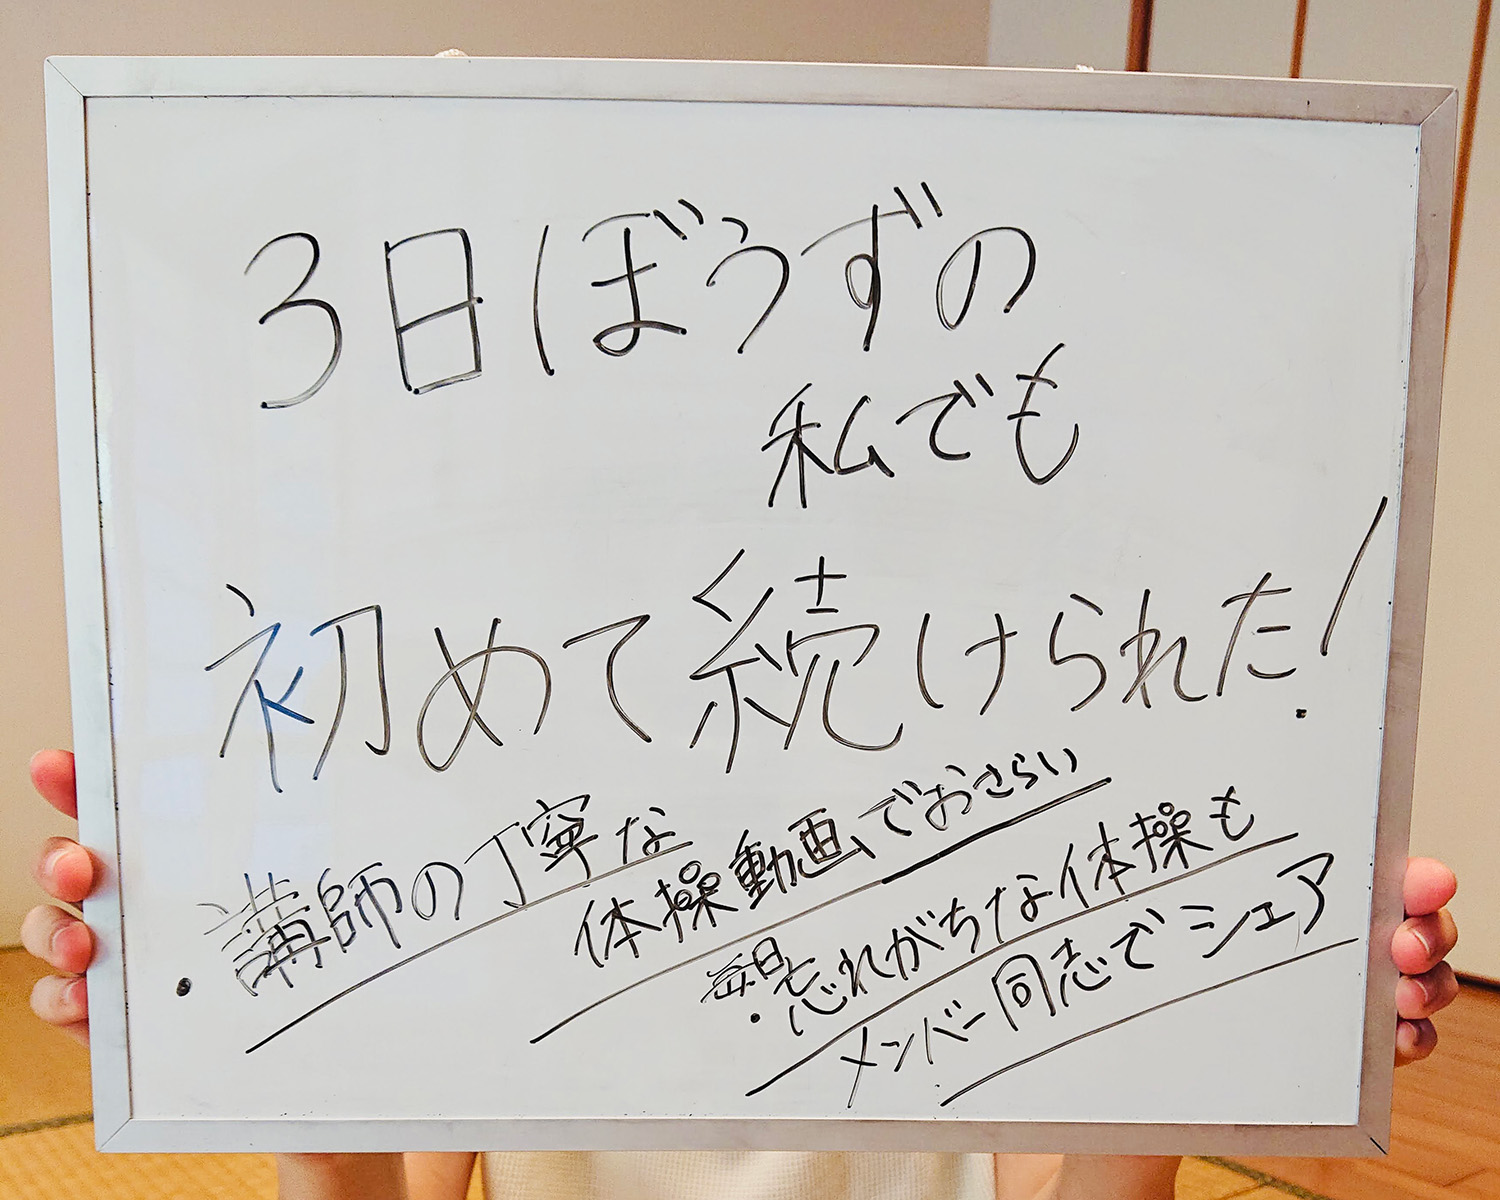 3日ぼうずの
私でも
初めて続けられた!
・講師の丁寧な
体操動画でおさらい
・毎日忘れがちな体操も
メンバー同志でシェア